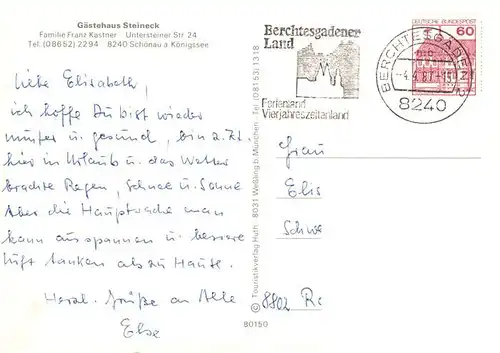 Gästehaus Steineck
Familie Franz Kastner Untersteiner Str. 24
Tel. (08652) 2294 8240 Schönau a Königssee
Liebe Elisabeth,
ich hoffe Du bist wieder
munter u. gesund, bin z. Zt.
hier in Urlaub u. das Wetter
brachte Regen, Schnee u. Sonne
Aber die Hauptsache man
kann ausspannen u. bessere
Luft tanken als zu Hause.
Herzl. Grüße an Alle
Else
© Touristikverlag Huth · 8031 Weßling b. München · Tel. (08153) 1318
80150
Berchtesgadener
Land
Ferienland
Vierjahreszeitenland
BERCHTESGADEN
8240
DEUTSCHE BUNDESPOST
60
Frau
Elis
Schw
8802 Re